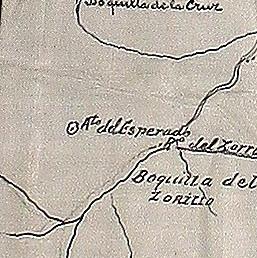 Boquilla de la Cruz
Ato del Esperado
Ro del Zorri
Boquilla del
Zorillo